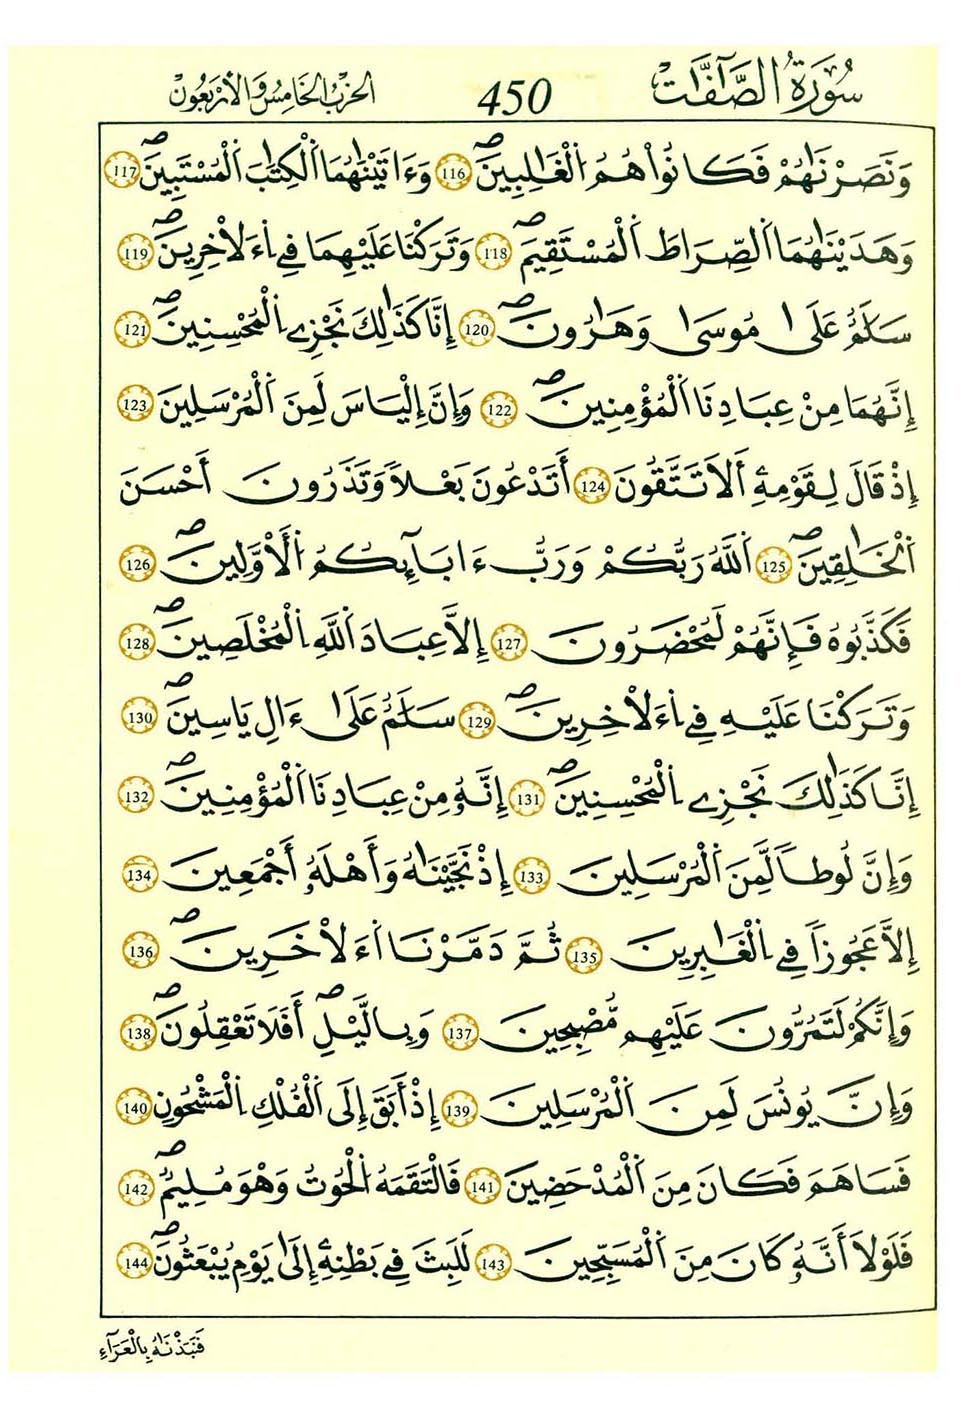 سُورَةُ الصَّآفَّٰتِ 450 الحزب الخامس والأربعون
وَنَصَرْنَٰهُمْ فَكَانُواْ هُمُ اُ۬لْغَٰلِبِينَۖ 116 وَءَاتَيْنَٰهُمَا اَ۬لْكِتَٰبَ اَ۬لْمُسْتَبِينَۖ 117
وَهَدَيْنَٰهُمَا اَ۬لصِّرَاطَ اَ۬لْمُسْتَقِيمَۖ 118 وَتَرَكْنَا عَلَيْهِمَا فِے اِ۬ءَلَاخِرِينَۖ 119
سَلَٰمٌ عَلَىٰ مُوسَىٰ وَهَٰرُونَۖ 120 إِنَّا كَذَٰلِكَ نَجْزِے اِ۬لْمُحْسِنِينَۖ 121
إِنَّهُمَا مِنْ عِبَادِنَا اَ۬لْمُؤْمِنِينَۖ 122 وَإِنَّ إِلْيَاسَ لَمِنَ اَ۬لْمُرْسَلِينَ 123
إِذْ قَالَ لِقَوْمِهِۦٓ أَلَا تَتَّقُونَ 124 أَتَدْعُونَ بَعْلاً وَتَذَرُونَ أَحْسَنَ
اَ۬لْخَٰلِقِينَۖ 125 اَ۬للَّهُ رَبُّكُمْ وَرَبُّ ءَابَآئِكُمُ اُ۬لَأَوَّلِينَۖ 126
فَكَذَّبُوهُ فَإِنَّهُمْ لَمُحْضَرُونَ 127 إِلَّا عِبَادَ اَ۬للَّهِ اِ۬لْمُخْلَصِينَۖ 128
وَتَرَكْنَا عَلَيْهِ فِے اِ۬ءَلَاخِرِينَۖ 129 سَلَٰمٌ عَلَىٰ ءَالِ يَاسِينَۖ 130
إِنَّا كَذَٰلِكَ نَجْزِے اِ۬لْمُحْسِنِينَۖ 131 إِنَّهُۥ مِنْ عِبَادِنَا اَ۬لْمُؤْمِنِينَۖ 132
وَإِنَّ لُوطاً لَّمِنَ اَ۬لْمُرْسَلِينَ 133 إِذْ نَجَّيْنَٰهُ وَأَهْلَهُۥٓ أَجْمَعِينَ 134
إِلَّا عَجُوزاً فِے اِ۬لْغَٰبِرِينَ 135 ثُمَّ دَمَّرْنَا اَ۬ءَلَاخَرِينَۖ 136
وَإِنَّكُمْ لَتَمُرُّونَ عَلَيْهِم مُّصْبِحِينَ 137 وَبِالَّيْلِۖ أَفَلَا تَعْقِلُونَۖ 138
وَإِنَّ يُونُسَ لَمِنَ اَ۬لْمُرْسَلِينَ 139 إِذْ أَبَقَ إِلَى اَ۬لْفُلْكِ اِ۬لْمَشْحُونِ 140
فَسَاهَمَ فَكَانَ مِنَ اَ۬لْمُدْحَضِينَ 141 فَالْتَقَمَهُ اُ۬لْحُوتُ وَهْوَ مُلِيمٌۖ 142
فَلَوْلَا أَنَّهُۥ كَانَ مِنَ اَ۬لْمُسَبِّحِينَ 143 لَلَبِثَ فِے بَطْنِهِۦٓ إِلَىٰ يَوْمِ يُبْعَثُونَۖ 144
فَنَبَذْنَٰهُ بِالْعَرَآءِ